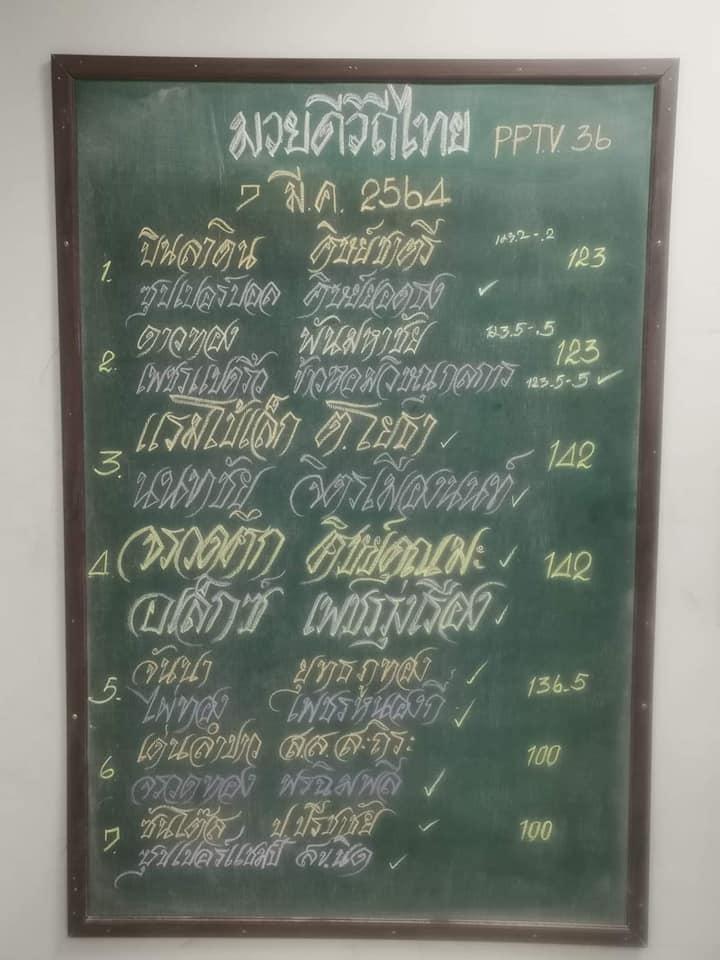 มวยดีวิถีไทย PPTV. 36
7 มี.ค. 2564
1. บินลาดิน ศิษย์ชาตรี 123.2-.2 123
ซุปเปอร์บอล ศิษย์ยอดธง ✓
2. ดาวทอง พันมหาชัย 123.5-.5 123
เพชรแปดริ้ว ข้าวหอมวิษณุกลการ 123.5-5 ✓
3. แรมโบ้เล็ก ต.โยธา ✓ 142
นนทชัย จิตรเมืองนนท์ ✓
4. จรวดศึก ศิษย์คุณมะ ✓ 142
อเล็กซ์ เพชรรุ่งเรือง ✓
5. จันนา ยุทธภูทอง ✓ 136.5
ไผ่ทอง เพชรหนองกี่ ✓
6 เด่นลำปาว ส.ส.สะถิระ 100
จรวดทอง พรฉิมพลี ✓
7. ซันโต๊ส ป.ปรีชาชัย ✓ 100
ซุปเปอร์แชมป์ ✓